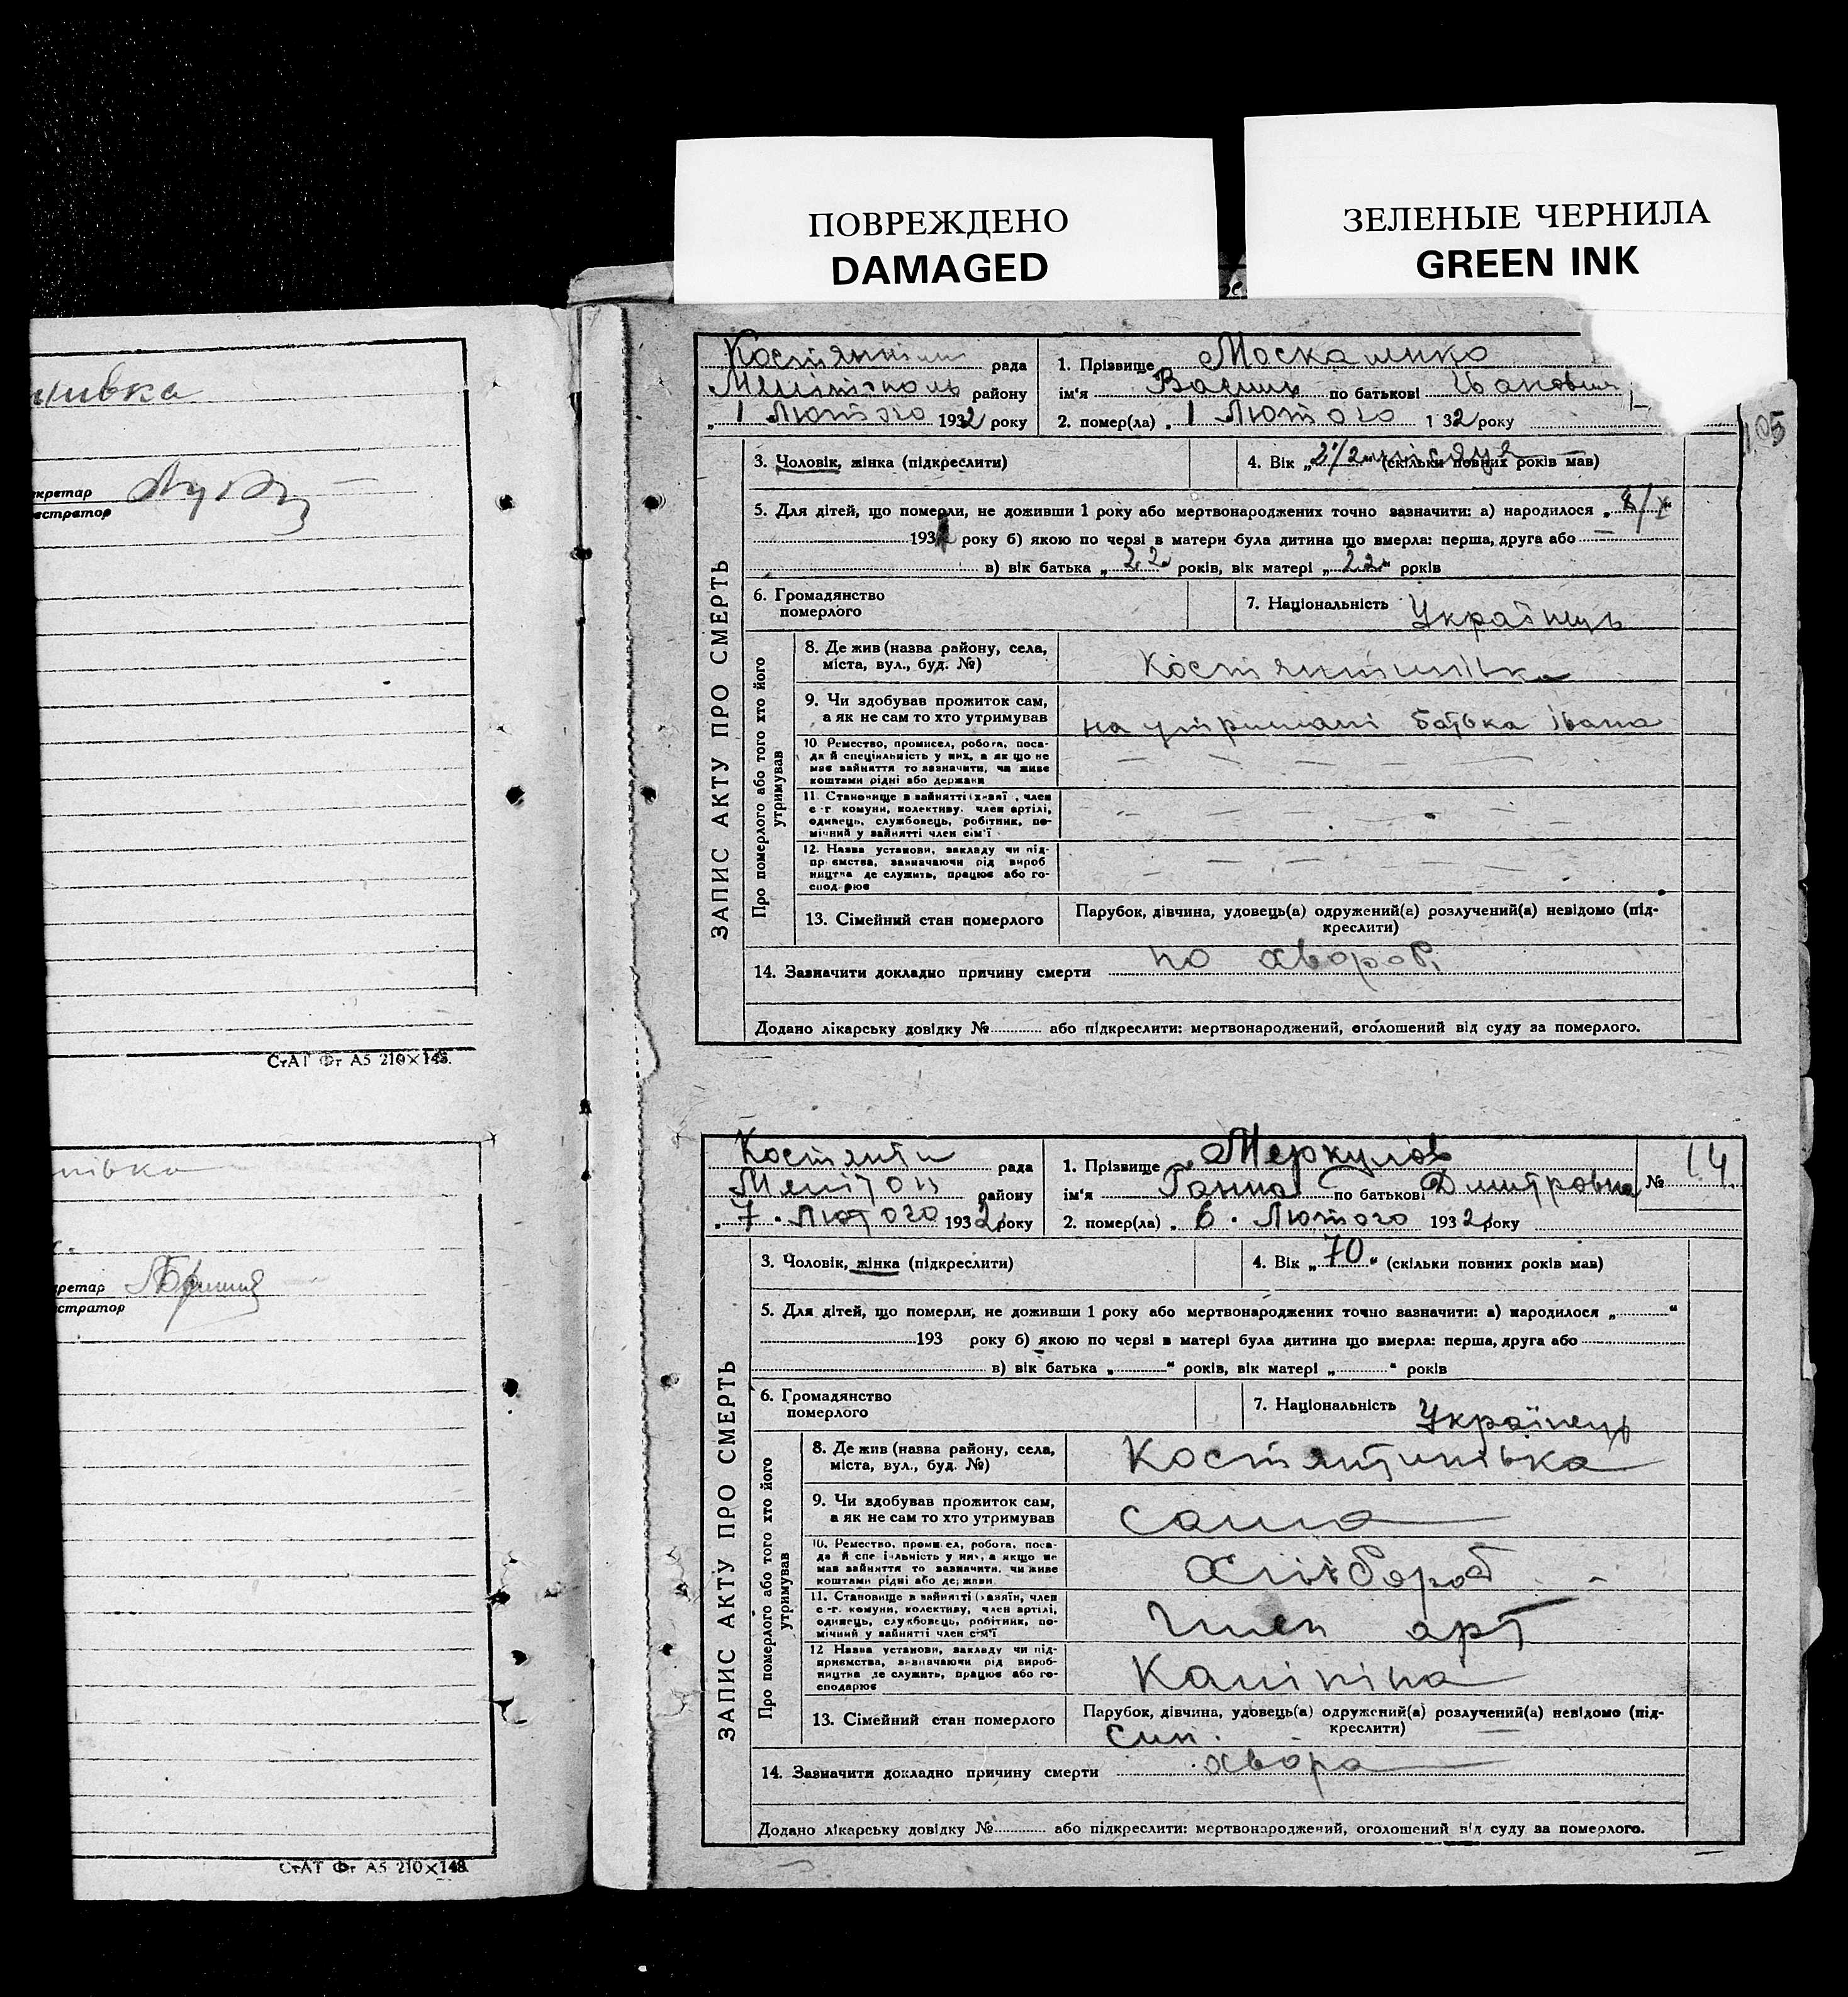 ПОВРЕЖДЕНО
DAMAGED
ЗЕЛЕНЫЕ ЧЕРНИЛА
GREEN INK
105
нивка
кретар
естратор
СтАТ Фт А5 210×148.
нівка
кретар
стратор
СтАТ Фт А5 210×148.
рада
Мелітополь району
„ 1 Лютого 1932 року
1. Прізвище Москаленко
ім'я Василь по батькові Іванович
2. помер(ла) „ 1 Лютого 1 32 року
ЗАПИС АКТУ ПРО СМЕРТЬ
3. Чоловік, жінка (підкреслити)
4. Вік „ 2 1/2 місяця (скільки повних років мав)
5. Для дітей, що померли, не доживши 1 року або мертвонароджених точно зазначити: а) народилося „
193 року б) якою по черзі в матери була дитина що вмерла: перша, друга або
в) вік батька „ 22 років, вік матері „ 22 років
6. Громадянство
померлого
7. Національність Українець
Про померлого або того хто його
утримував
8. Де жив (назва району, села,
міста, вул., буд. №)
Костянтинівка
9. Чи здобував прожиток сам,
а як не сам то хто утримував
на утримані батька Івана
10 Ремество, промисел, робота, поса-
да й спеціяльність у них, а як що не
мав зайняття то зазначити, чи живе
коштами рідні або держави
11. Становище в зайнятті (хазяї , член
с-г. комуни, колективу, член артілі,
одинець, службовець, робітник, по-
мічний у зайнятті член сім'ї
12. Назва установи, закладу чи під-
пр ємства, зазначаючи рід вироб
ництва де служить, працює або го-
спод рює
13. Сімейний стан померлого
Парубок, дівчина, удовець(а) одружений(а) розлучений(а) невідомо (під-
креслити)
14. Зазначити докладно причину смерти по хвороб,
Додано лікарську довідку № або підкреслити: мертвонароджений, оголошений від суду за померлого.
Костянти рада
району
„ 7 . Лютого 1932 року
1. Прізвище Меркулов
ім'я Ганна по батькові Дмитровна
№ 14
2. помер(ла) „ 6 . Лютого 1932 року
ЗАПИС АКТУ ПРО СМЕРТЬ
3. Чоловік, жінка (підкреслити)
4. Вік „ 70 “ (скільки повних років мав)
5. Для дітей, що померли, не доживши 1 року або мертвонароджених точно зазначити: а) народилося „ “
193 року б) якою по черзі в матері була дитина що вмерла: перша, друга або
в) вік батька „ “ років, вік матері „ “ років
6. Громадянство
померлого
7. Національність Українець
Про померлого або того хто його
утримував
8. Де жив (назва району, села,
міста, вул., буд. №)
Костянтинівка
9. Чи здобував прожиток сам,
а як не сам то хто утримував
сама
10. Ремество, промисел, робота, поса-
да й спе іяльність у них, а якщо не
мав зайняття то зазначити, чи живе
коштами рідні або держави
Хлібороб
11. Становище в зайнятті (хазяїн, член
с-г. комуни, колективу, член артілі,
одинець, службовець, робітник, по-
мічний у зайнятті член сім'ї
член арт
12 Назва установи, закладу чи під-
приємства, зазначаючи рід вироб-
ництва де служить, працює або го-
сподарює
Калініна
13. Сімейний стан померлого
Парубок, дівчина, удовець(а) одружений(а) розлучений(а) невідомо (під-
креслити)
14. Зазначити докладно причину смерти хвора
Додано лікарську довідку № або підкреслити: мертвонароджений, оголошений від суду за померлого.